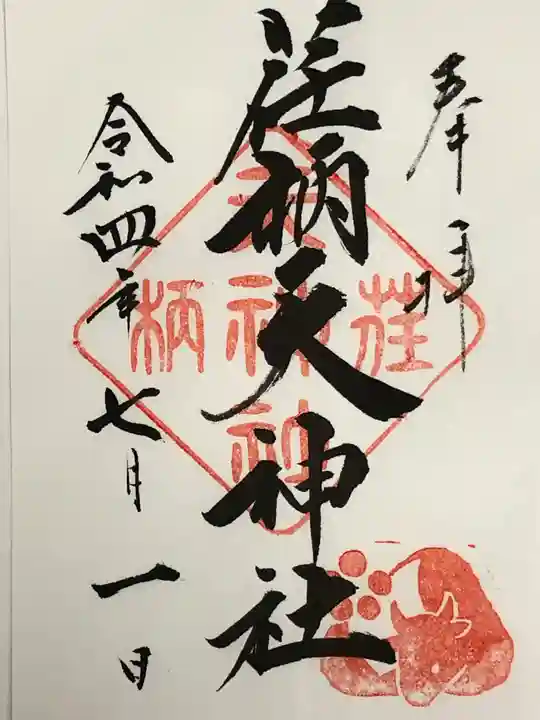 奉拝
荏柄天神社
令和四年七月一日
荏
天神社
柄